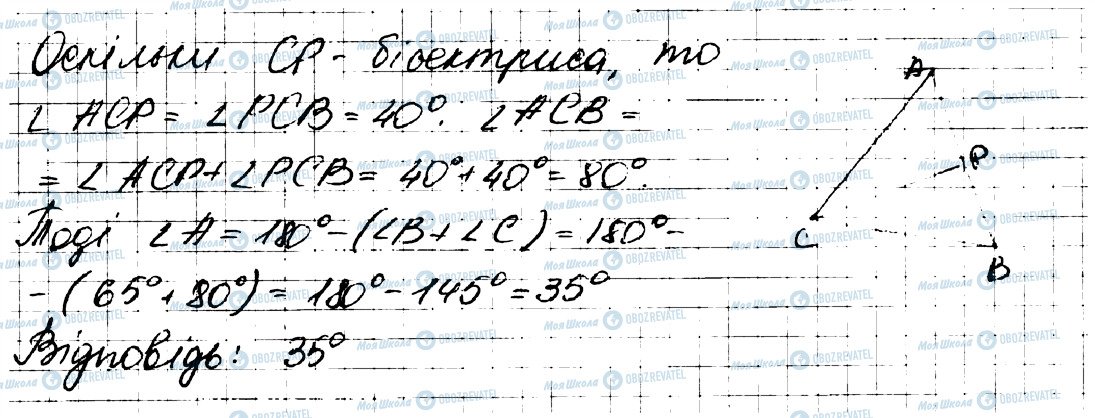 Оскільки CP - бісектриса, то
∠ACP = ∠PCB = 40°. ∠ACB =
= ∠ACP + ∠PCB = 40° + 40° = 80°.
Тоді ∠A = 180° - (∠B + ∠C) = 180° -
- (65° + 80°) = 180° - 145° = 35°
Відповідь: 35°
A
P
C
B
МояШкола OBOZREVATEL